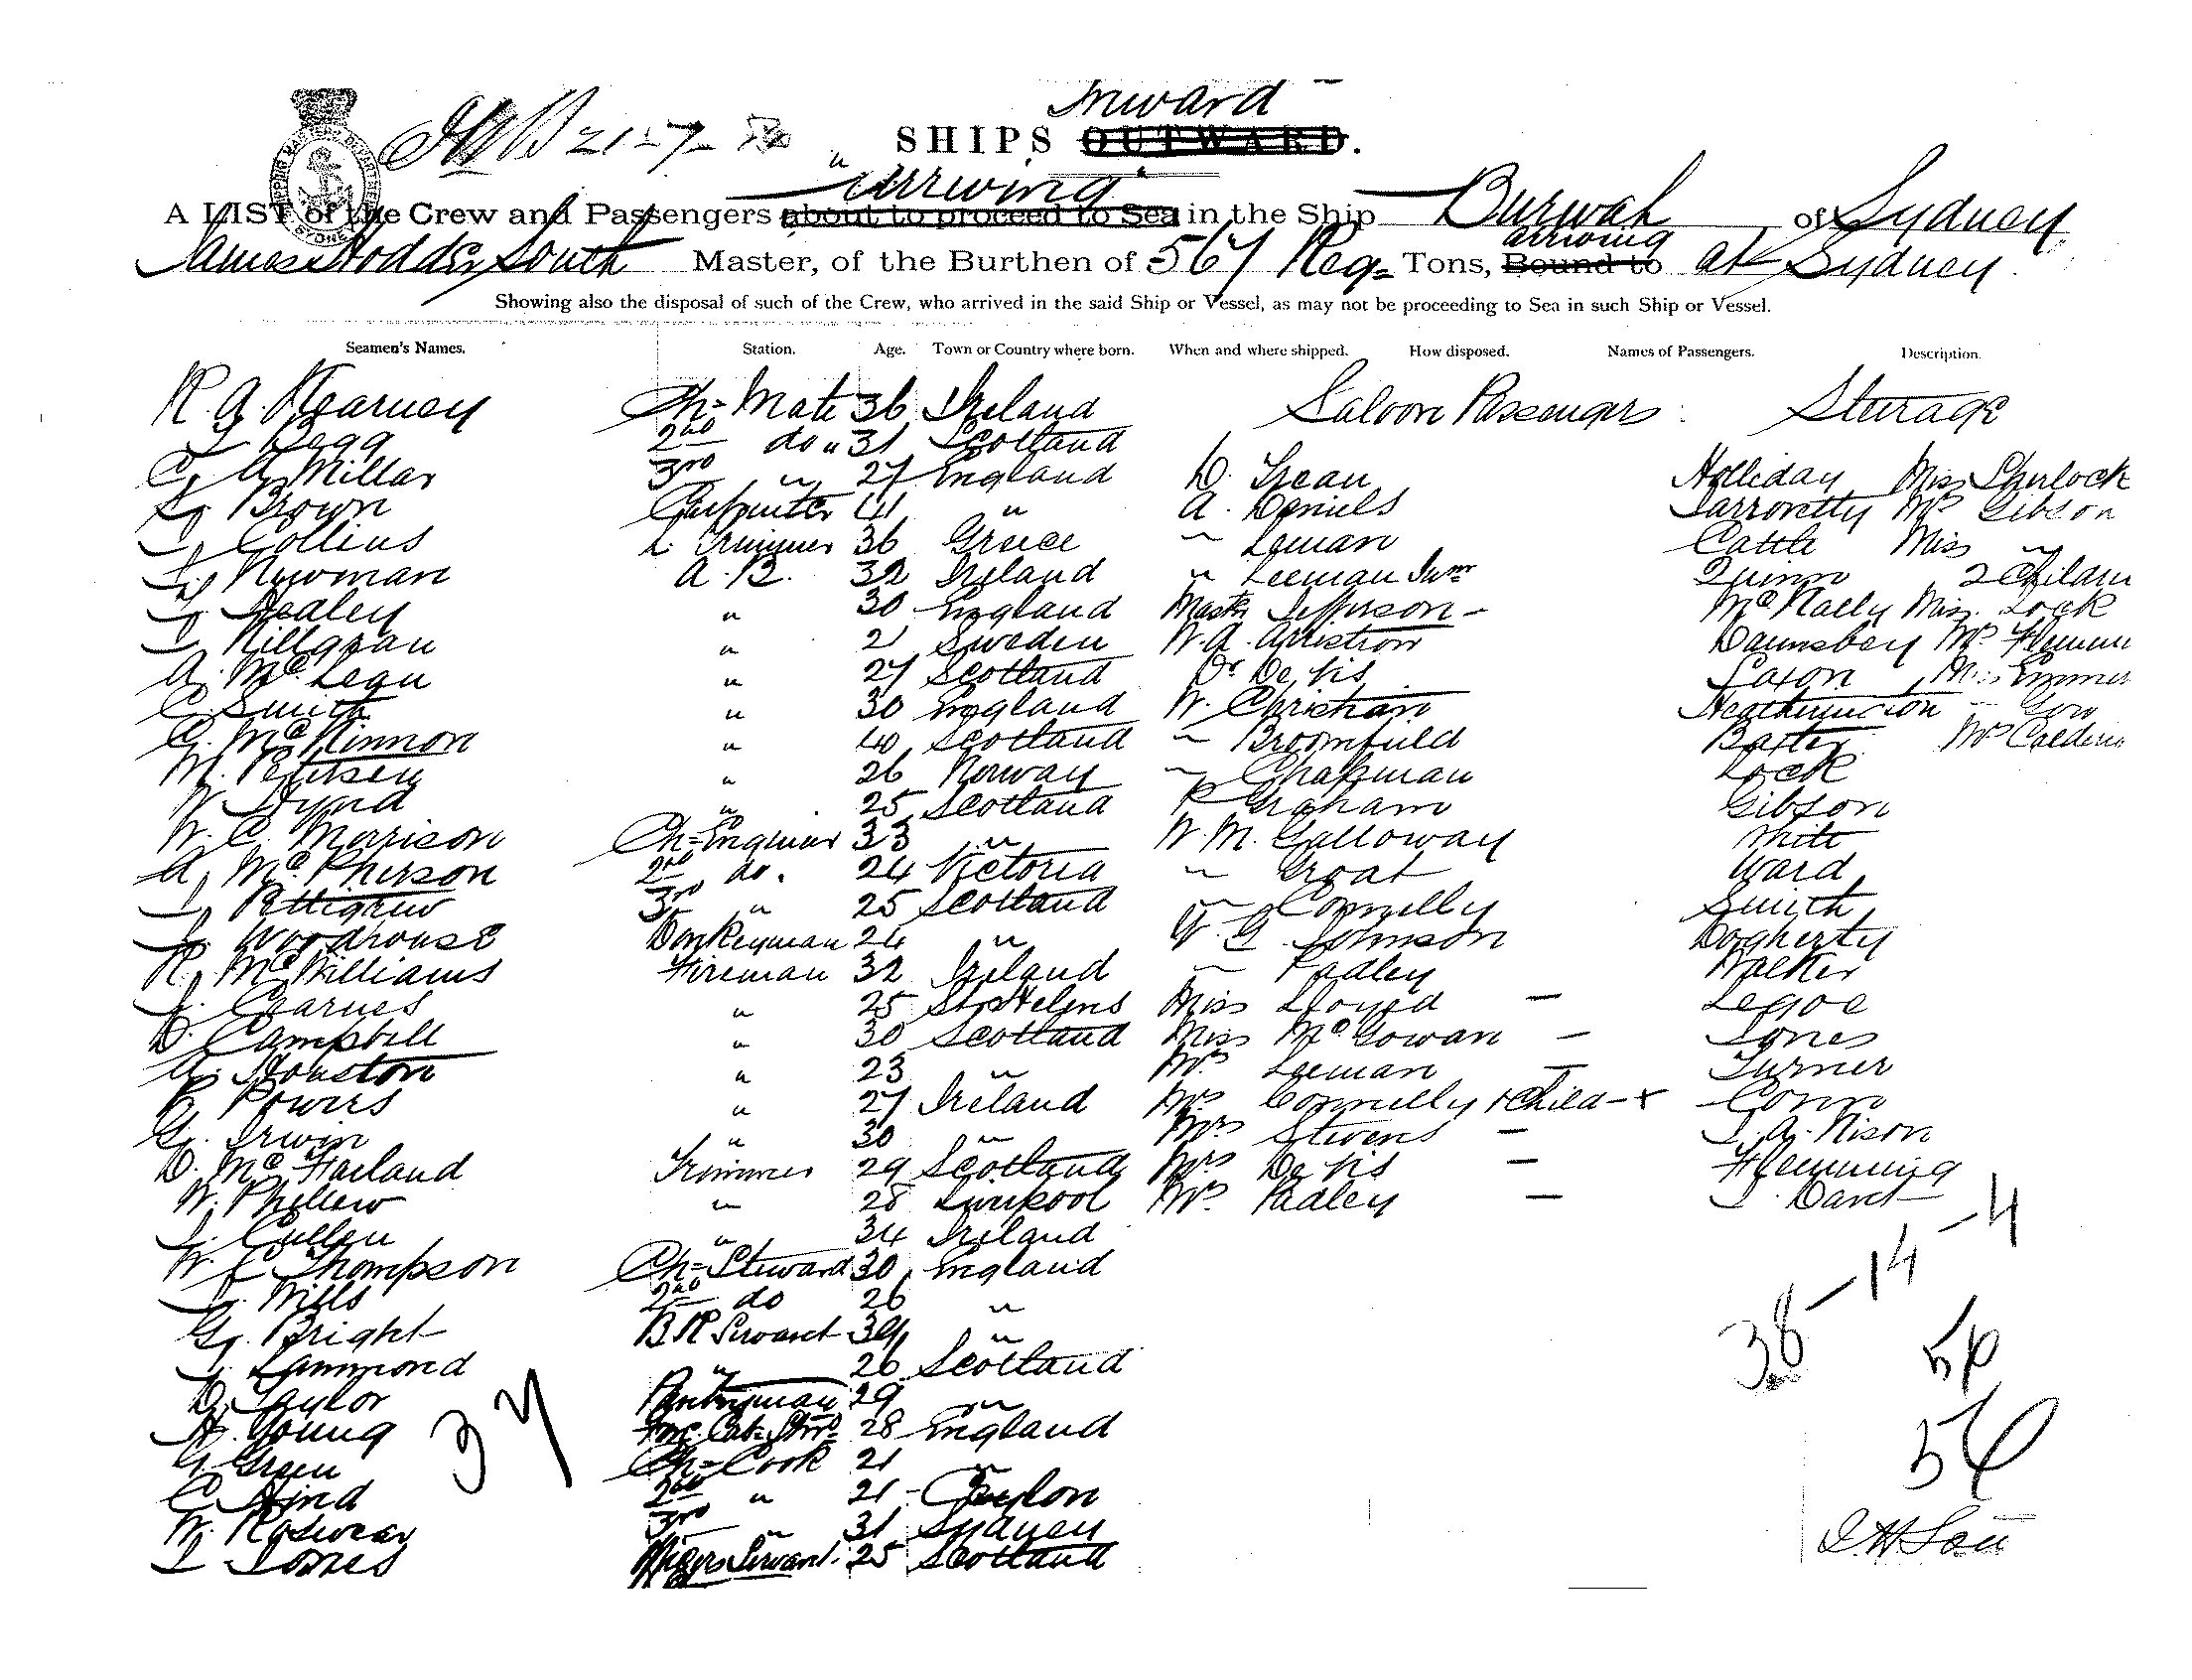 Inward
21-7-
SHIPS OUTWARD.
arriving
A LIST of the Crew and Passengers about to proceed to Sea in the Ship Burwah of Sydney
arriving
James Hodder South Master, of the Burthen of 567 Reg= Tons, Bound to at Sydney
Showing also the disposal of such of the Crew, who arrived in the said Ship or Vessel, as may not be proceeding to Sea in such Ship or Vessel.
Seamen's Names. Station. Age. Town or Country where born. When and where shipped. How disposed. Names of Passengers. Description.
R. A. Kearney Ch= Mate 36 Ireland Saloon Passengers Steerage
Begg 2nd do " 31 Scotland
C. A. Millar 3rd " 27 England D. Holliday Miss Sherlock
Brown Carpenter 41 " A. Daniels Mrs Gibson
Collins L. Trimmer 36 Greece " Leeman Cattle Miss "
Newman A.B. 32 Ireland " Leeman Junr Quinn 2 Children
Healey " 30 England Master Jefferson - McNally Miss Lock
Nillgran " 21 Sweden W. A. Mrs
A. McLean " 27 Scotland Dr De Vis Saxon
C. Smith " 30 England W. Christian
McKinnon " 40 Scotland " Broomfield Baxter Mrs
M. Petersen " 26 Norway " Chapman Lock
W Hynd " 25 Scotland R Graham Gibson
W. C. Morrison Ch= Engineer 33 " W. M. Galloway White
A. McPherson 2nd do. 24 Victoria " Groat Ward
J. Pettigrew 3rd " 25 Scotland " Connelly Smith
Woodrouse Donkeyman 24 " Johnson Dogherty
R. McWilliams Fireman 32 Ireland " Padley Walker
Cearnes " 25 St Helens Miss Lloyd - Legoe
D. Campbell " 30 Scotland Miss McGowan - Jones
A. Houston " 23 " Mrs Leeman - Turner
Powers " 27 Ireland Mrs Connelly + Child - x Conn
G. Irwin " 30 " Mrs Stevens - J. A. Nison
D. McFarland Trimmer 29 Scotland Mrs De Vis - Flemming
W. Phillew " 28 Liverpool Mrs Padley - J. Dart
J. Cullen " 34 Ireland
W. C Thompson Ch= Steward 30 England
J. Wills 2nd do 26 "
G. Bright B R Servant 34 "
J. Lammond " 26 Scotland
D. Taylor Pantryman 29 "
H. Young Fre. Cab= Stwd= 28 England
G. Green Ch= Cook 21 "
C. Hind 2nd " 21 - Ceylon
W. 3rd " 31 Sydney
J Jones Servant. 25 Scotland
37
38 - 14 - 4
56